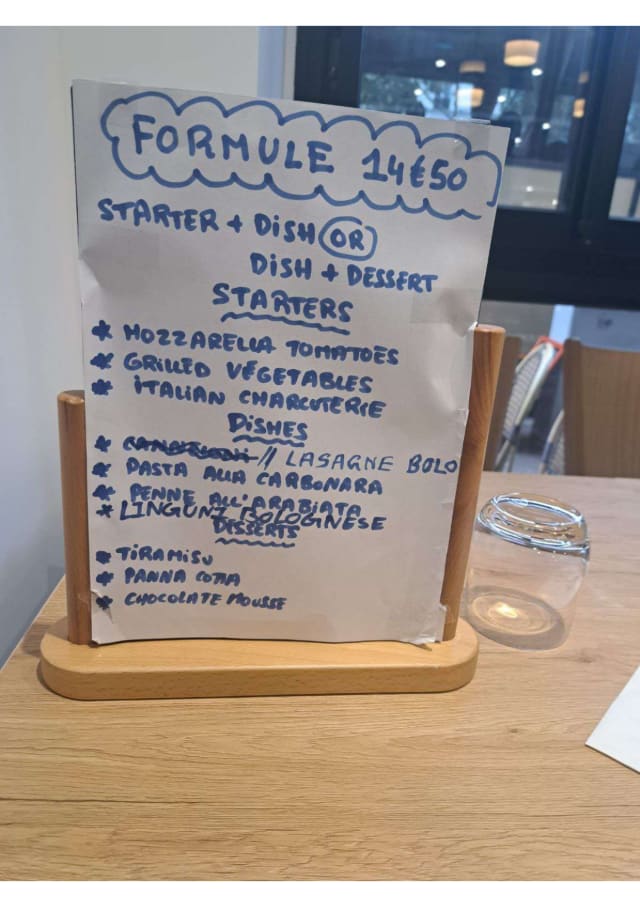 FORMULE 14€50
STARTER + DISH OR
DISH + DESSERT
STARTERS
* MOZZARELLA TOMATOES
* GRILLED VÉGETABLES
* ITALIAN CHARCUTERIE
DISHES
* // LASAGNE BOLO
* PASTA ALLA CARBONARA
* PENNE ALL'ARABIATA
* LINGUNI BOLOGINESE
DESSERTS
* TIRAMISU
* PANNA COTTA
* CHOCOLATE MOUSSE